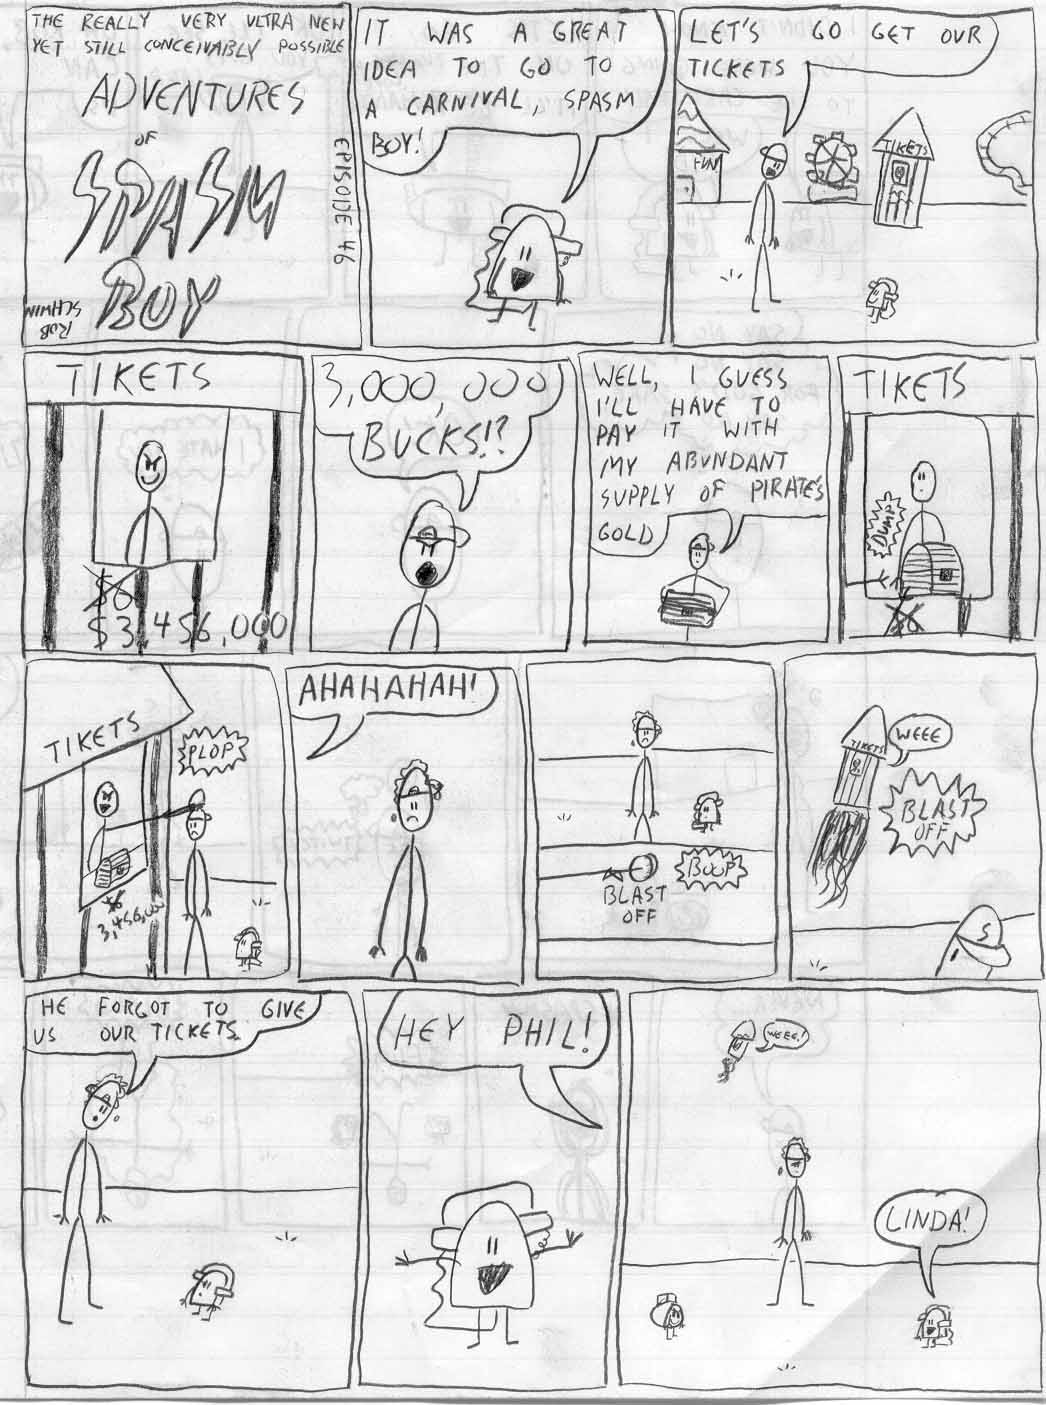 THE REALLY VERY ULTRA NEW
YET STILL CONCEIVABLY POSSIBLE
ADVENTURES
OF
SPASM
BOY
EPISOIDE 46
ROB
SCHWIN
IT WAS A GREAT
IDEA TO GO TO
A CARNIVAL, SPASM
BOY!
LET'S GO GET OUR
TICKETS
FUN
TIKETS
TIKETS
$6
$3,456,000
3,000,000
BUCKS!?
WELL, I GUESS
I'LL HAVE TO
PAY IT WITH
MY ABUNDANT
SUPPLY OF PIRATE'S
GOLD
TIKETS
DUMP
$6
TIKETS
PLOP
$6
3,456,000
AHAHAHAH!
BOOP
BLAST
OFF
TIKETS
WEEE
BLAST
OFF
S
HE FORGOT TO GIVE
US OUR TICKETS.
HEY PHIL!
WEEE!
LINDA!